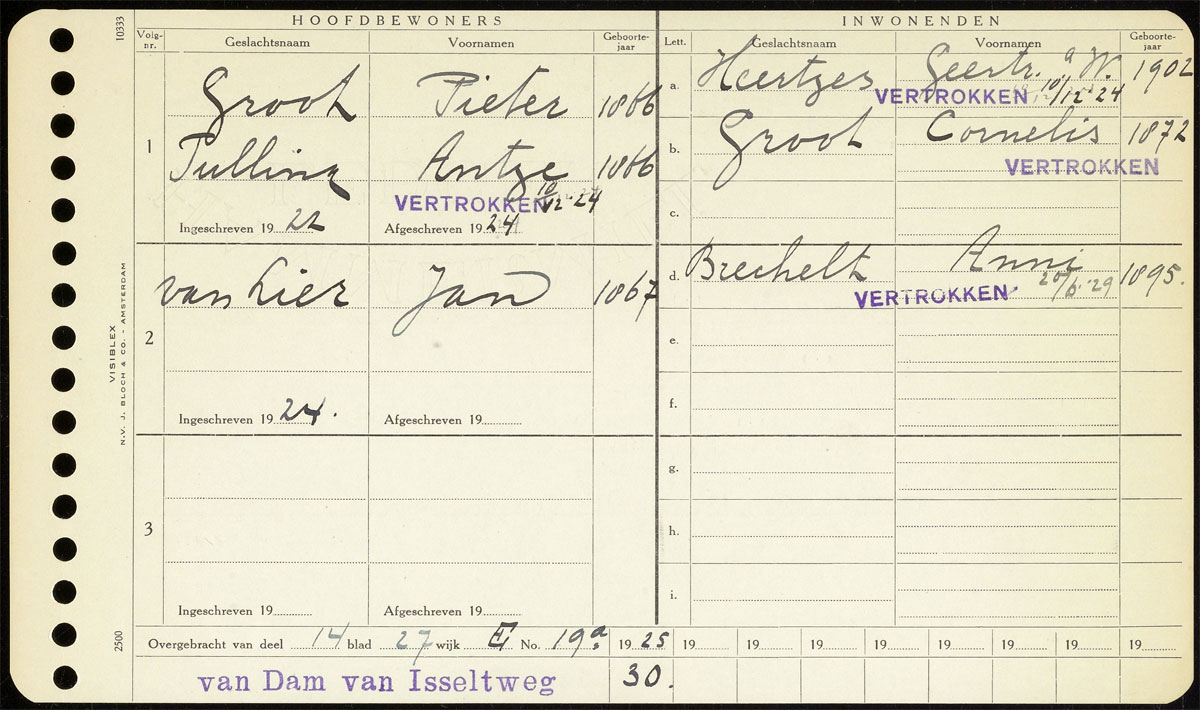 HOOFDBEWONERS
INWONENDEN
Volg-nr.
Geslachtsnaam
Voornamen
Geboorte-jaar
Lett.
Geslachtsnaam
Voornamen
Geboorte-jaar
1
Groot Pieter 1866
Pulling Antze 1866
VERTROKKEN 10/12-24
Ingeschreven 1922
Afgeschreven 1924
a. Heertzes Geertr.a W. 1902
VERTROKKEN 10/12-24
b. Groot Cornelis 1872
VERTROKKEN
c.
2
van Lier Jan 1867
Ingeschreven 1924.
Afgeschreven 19
d. Brechelt Anni 1895.
VERTROKKEN 20/6-29
e.
f.
3
Ingeschreven 19
Afgeschreven 19
g.
h.
i.
Overgebracht van deel 14 blad 27 wijk E No. 19a. 1925 19 19 19 19 19 19 19 19
van Dam van Isseltweg 30.
10333
VISIBLEX
N.V. J. BLOCH & CO. - AMSTERDAM
2500